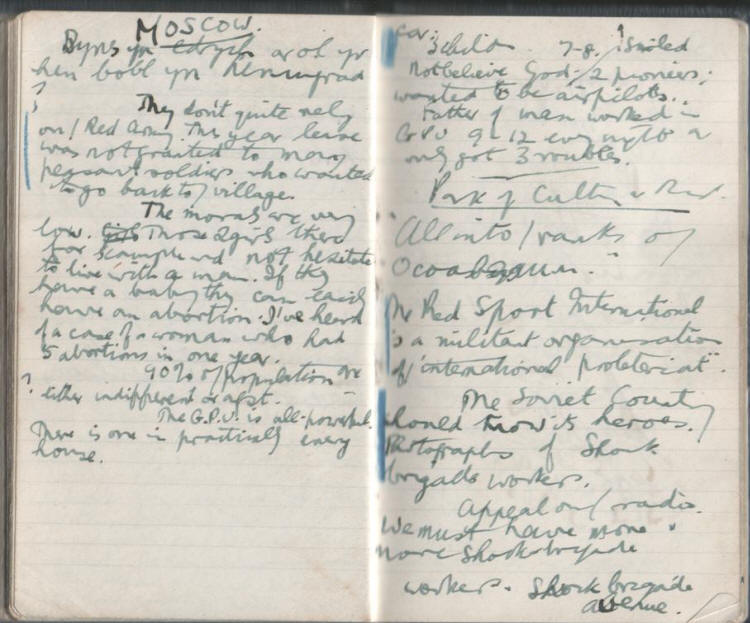 MOSCOW.
Byns yn edrych ar ol yr
hen bobl yn Leningrad
? They don't quite rely
on / Red Army. This year leave
was not granted to many
peasant soldiers who wanted
to go back to / village.
The morals are very
low. Those 2 girls there
for example wd not hesitate
to live with a man. If they
have a baby they can easily
have an abortion. I've heard
of a case of a woman who had
5 abortions in one year.
90% of population are
? either indifferent or agst.
The G.P.U. is all-powerful.
There is one in practically every
house.
car.
7-8. smiled
Not believe God. 2 pioneers;
wanted to be airpilots.
Father of man worked in
9-12 every night &
only got 3 roubles.
Park of Culture & Rest.
All into / ranks of
The Red Sport International
is a militant organisation
of "international proletariat".
The Soviet Country
should know its heroes.
Photographs of Shock
brigade workers.
Appeal on / radio.
We must have more &
more shock brigade
workers. Shock brigade
avenue.